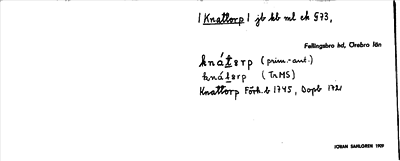 | Knattorp | jb kb ml ek § 73,
Fellingsbro hd, Örebro län
knátorp (prim.-ant.)
knátorp (TrMS)
Knattorp Förh.b 1745, Dopb 1721
JÖRAN SAHLGREN 1929